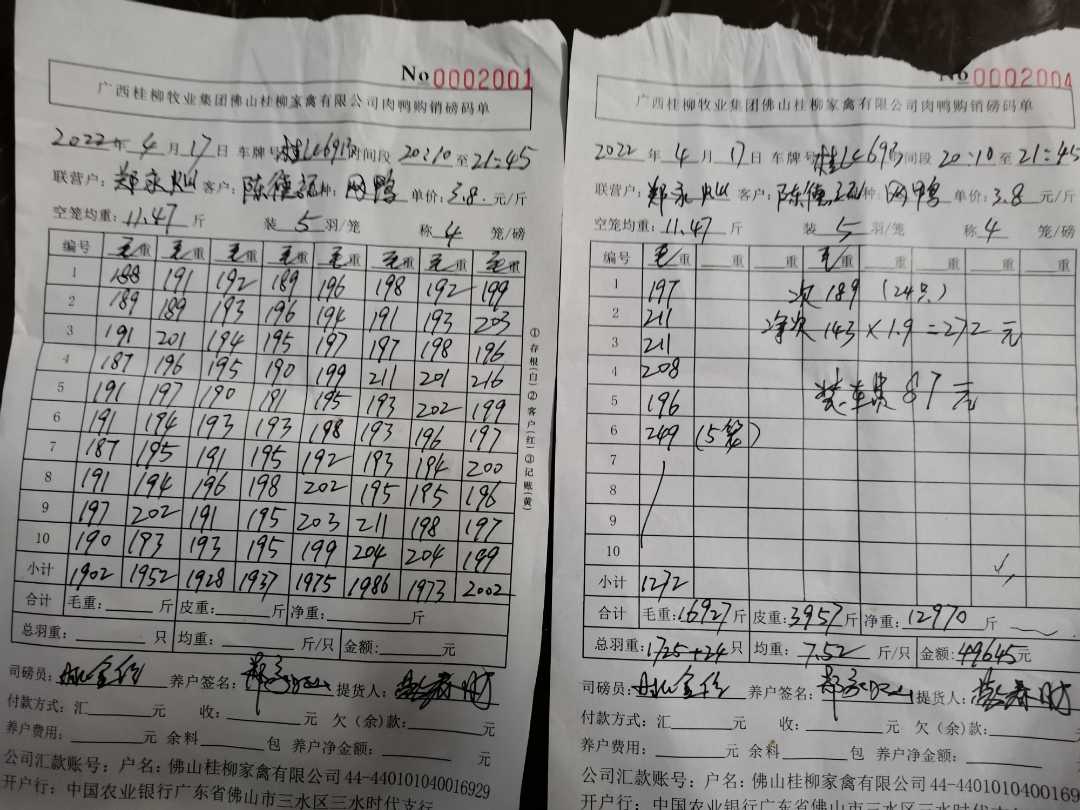 No 0002001
广西桂柳牧业集团佛山桂柳家禽有限公司肉鸭购销磅码单
2022年4月17日 车牌号 时间段 20:10 至 21:45
联营户: 客户: 种: 单价: 3.8 元/斤
空笼均重: 11.47 斤 装 5 羽/笼 称 4 笼/磅
编号 毛重 毛重 毛重 毛重 毛重 毛重 毛重 毛重
1 188 191 192 189 196 198 192 199
2 189 189 193 196 194 191 193 203
3 191 201 194 195 197 197 198 196
4 187 196 195 190 199 211 201 216
5 191 197 190 191 195 193 202 199
6 191 194 193 193 198 193 196 197
7 187 195 191 195 192 193 194 200
8 191 194 196 198 202 195 195 196
9 197 202 191 195 203 211 198 197
10 190 193 193 195 199 204 204 199
小计 1902 1952 1928 1937 1975 1986 1973 2002
合计 毛重: 斤 皮重: 斤 净重: 斤
总羽重: 只 均重: 斤/只 金额: 元
司磅员: 养户签名: 提货人:
付款方式: 汇 元 收: 元 欠(余)款:
养户费用: 元 余料 包 养户净金额:
公司汇款账号: 户名: 佛山桂柳家禽有限公司 44-440101040016929
开户行: 中国农业银行广东省佛山市三水区三水时代支行
①存根(白)②客户(红)③记账(黄)
No 0002004
广西桂柳牧业集团佛山桂柳家禽有限公司肉鸭购销磅码单
2022年4月17日 车牌号 时间段 20:10 至 21:45
联营户: 客户: 种: 单价: 3.8 元/斤
空笼均重: 11.47 斤 装 5 羽/笼 称 4 笼/磅
编号 毛重 重 重 毛重 重 重 重 重
1 197 次 189 (24只)
2 211 净次 143×1.9=272元
3 211
4 208 装车费 87元
5 196
6 249 (5笼)
7
8
9
10
小计 1272
合计 毛重: 16927 斤 皮重: 3957 斤 净重: 12970 斤
总羽重: 1725+24 只 均重: 7.52 斤/只 金额: 49645 元
司磅员: 养户签名: 提货人:
付款方式: 汇 元 收: 元 欠(余)款:
养户费用: 元 余料 包 养户净金额:
公司汇款账号: 户名: 佛山桂柳家禽有限公司 44-4401010400169
开户行: 中国农业银行广东省佛山市三水区三水时代